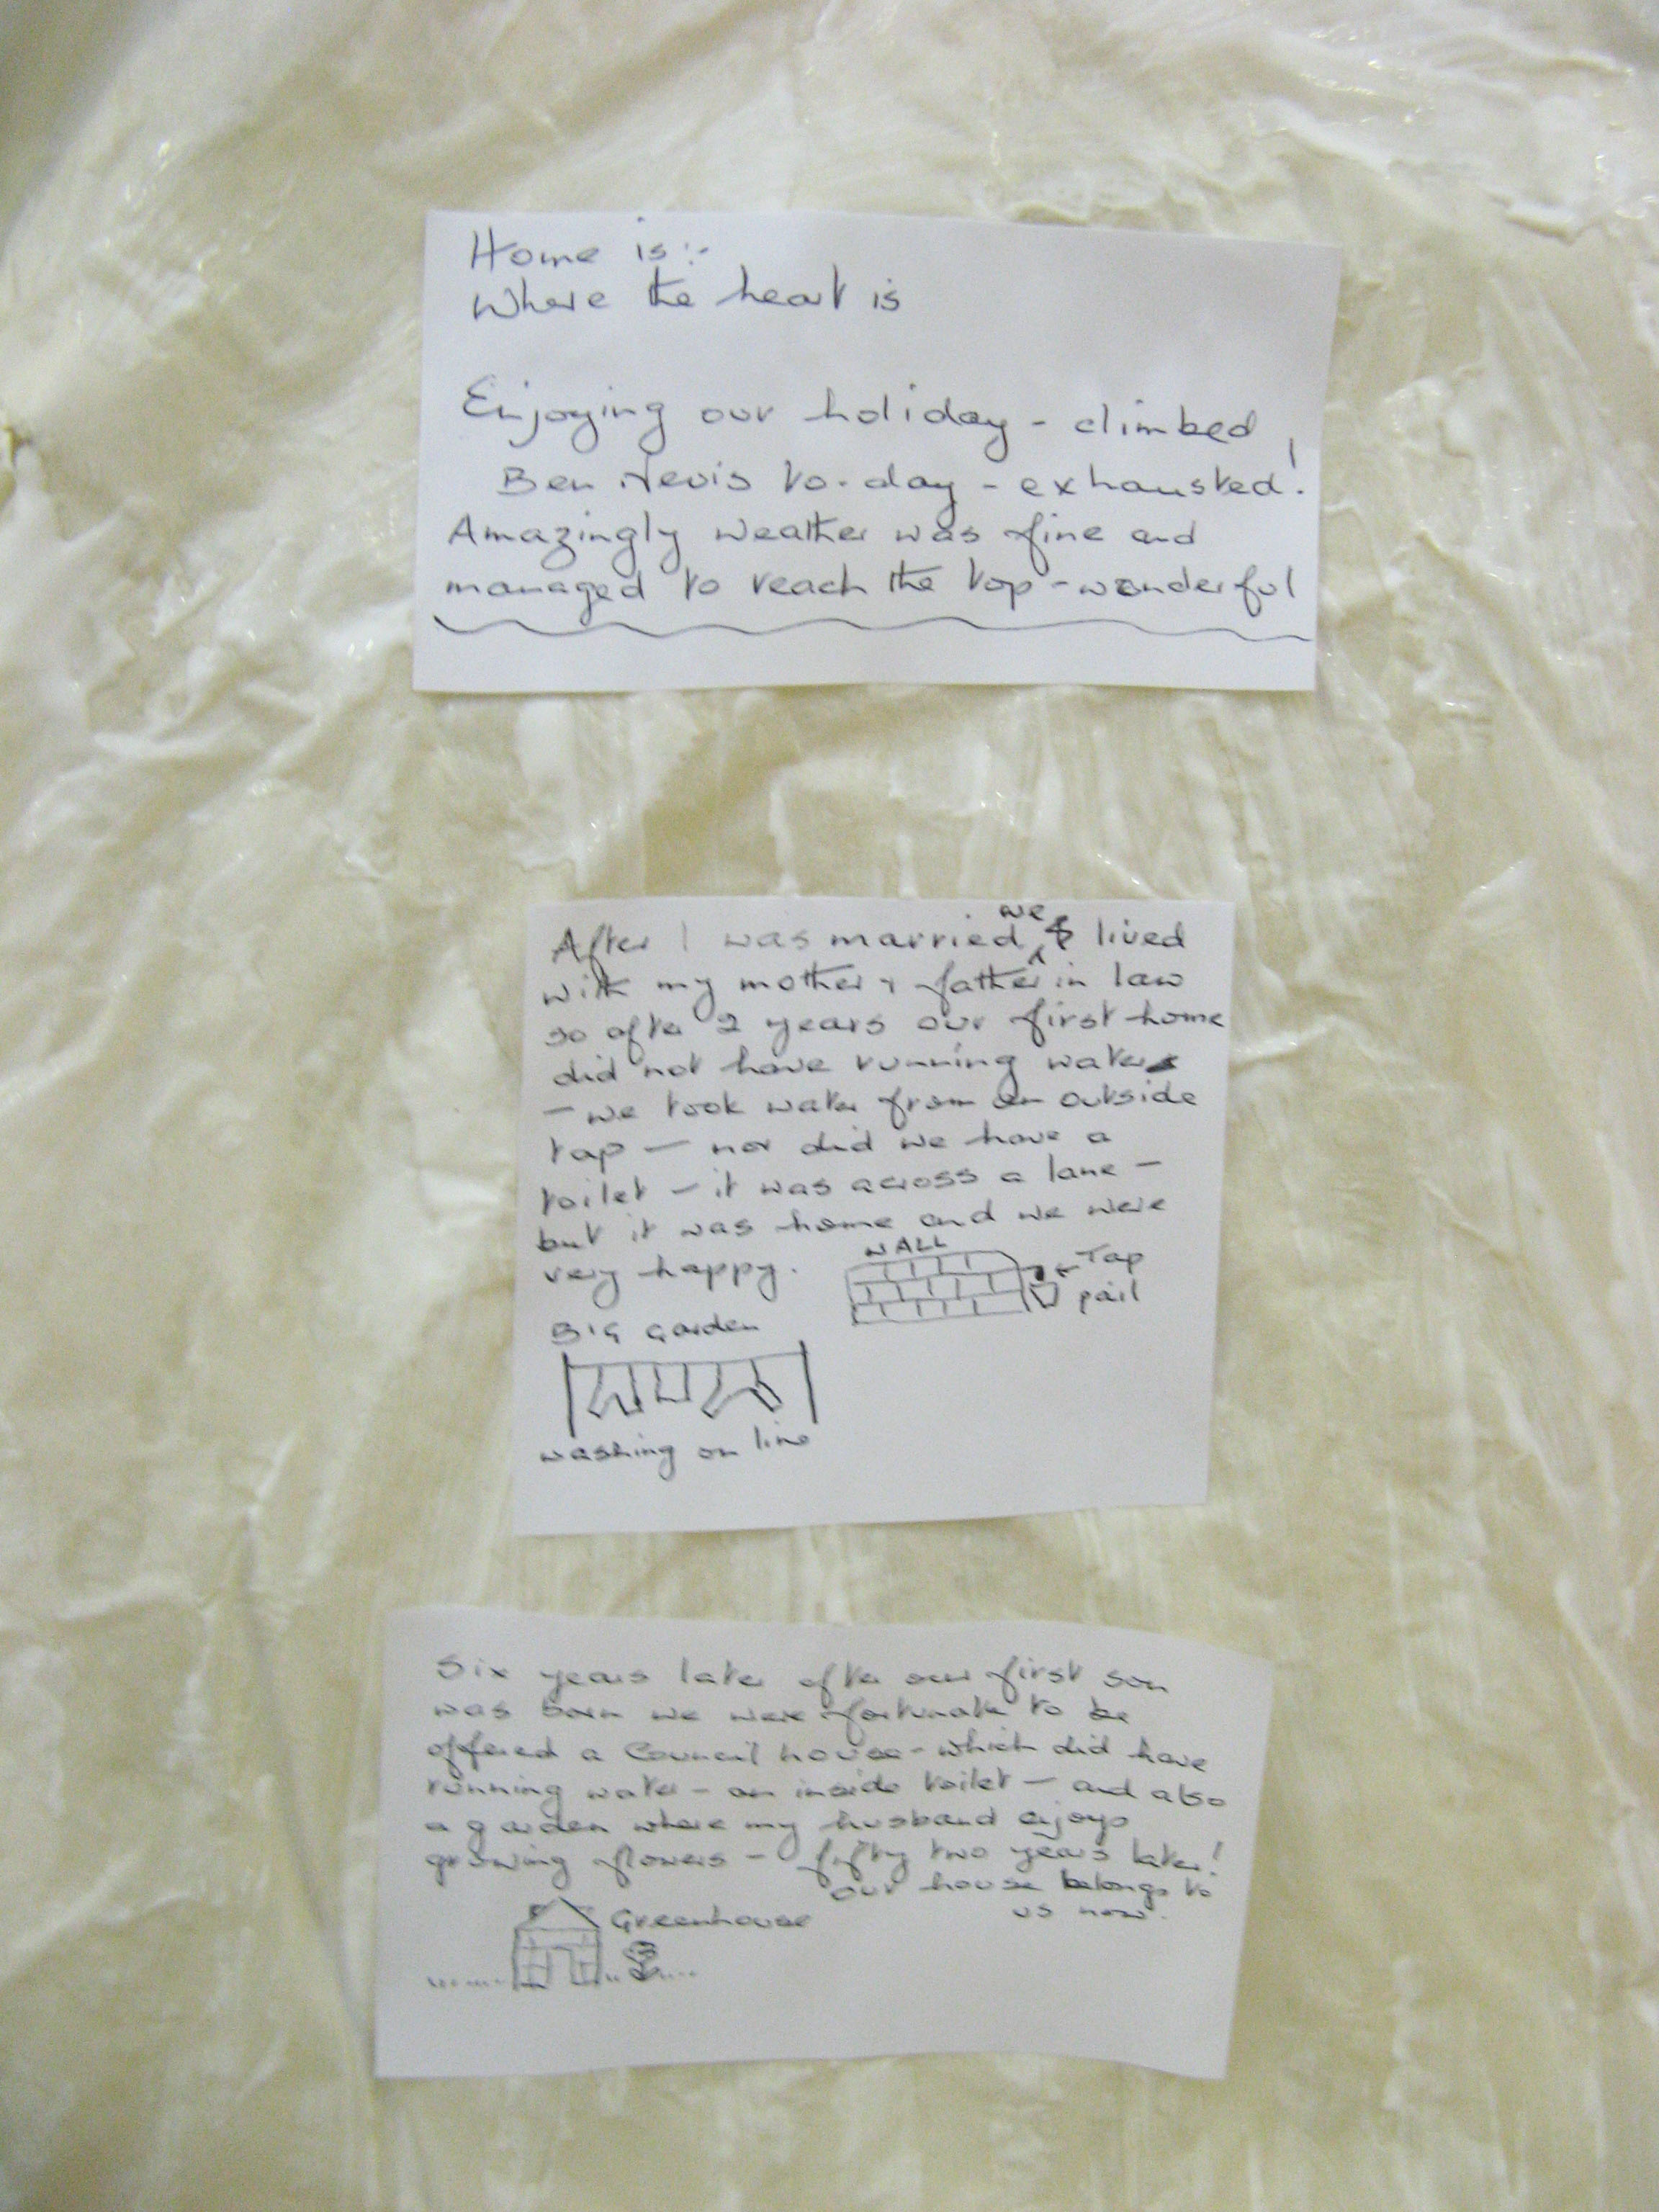 Home is:-
Where the heart is
Enjoying our holiday - climbed
Ben Nevis to-day - exhausted!
Amazingly weather was fine and
managed to reach the top - wonderful
After I was married we lived
with my mother & father in law
so after 2 years our first home
did not have running water
- we took water from an outside
tap - nor did we have a
toilet - it was across a lane -
but it was home and we were
very happy.
WALL
Tap
pail
BIG Garden
washing on line
Six years later after our first son
was born we were fortunate to be
offered a Council house - which did have
running water - an inside toilet - and also
a garden where my husband enjoys
growing flowers - fifty two years later!
our house belongs to
us now.
Greenhouse